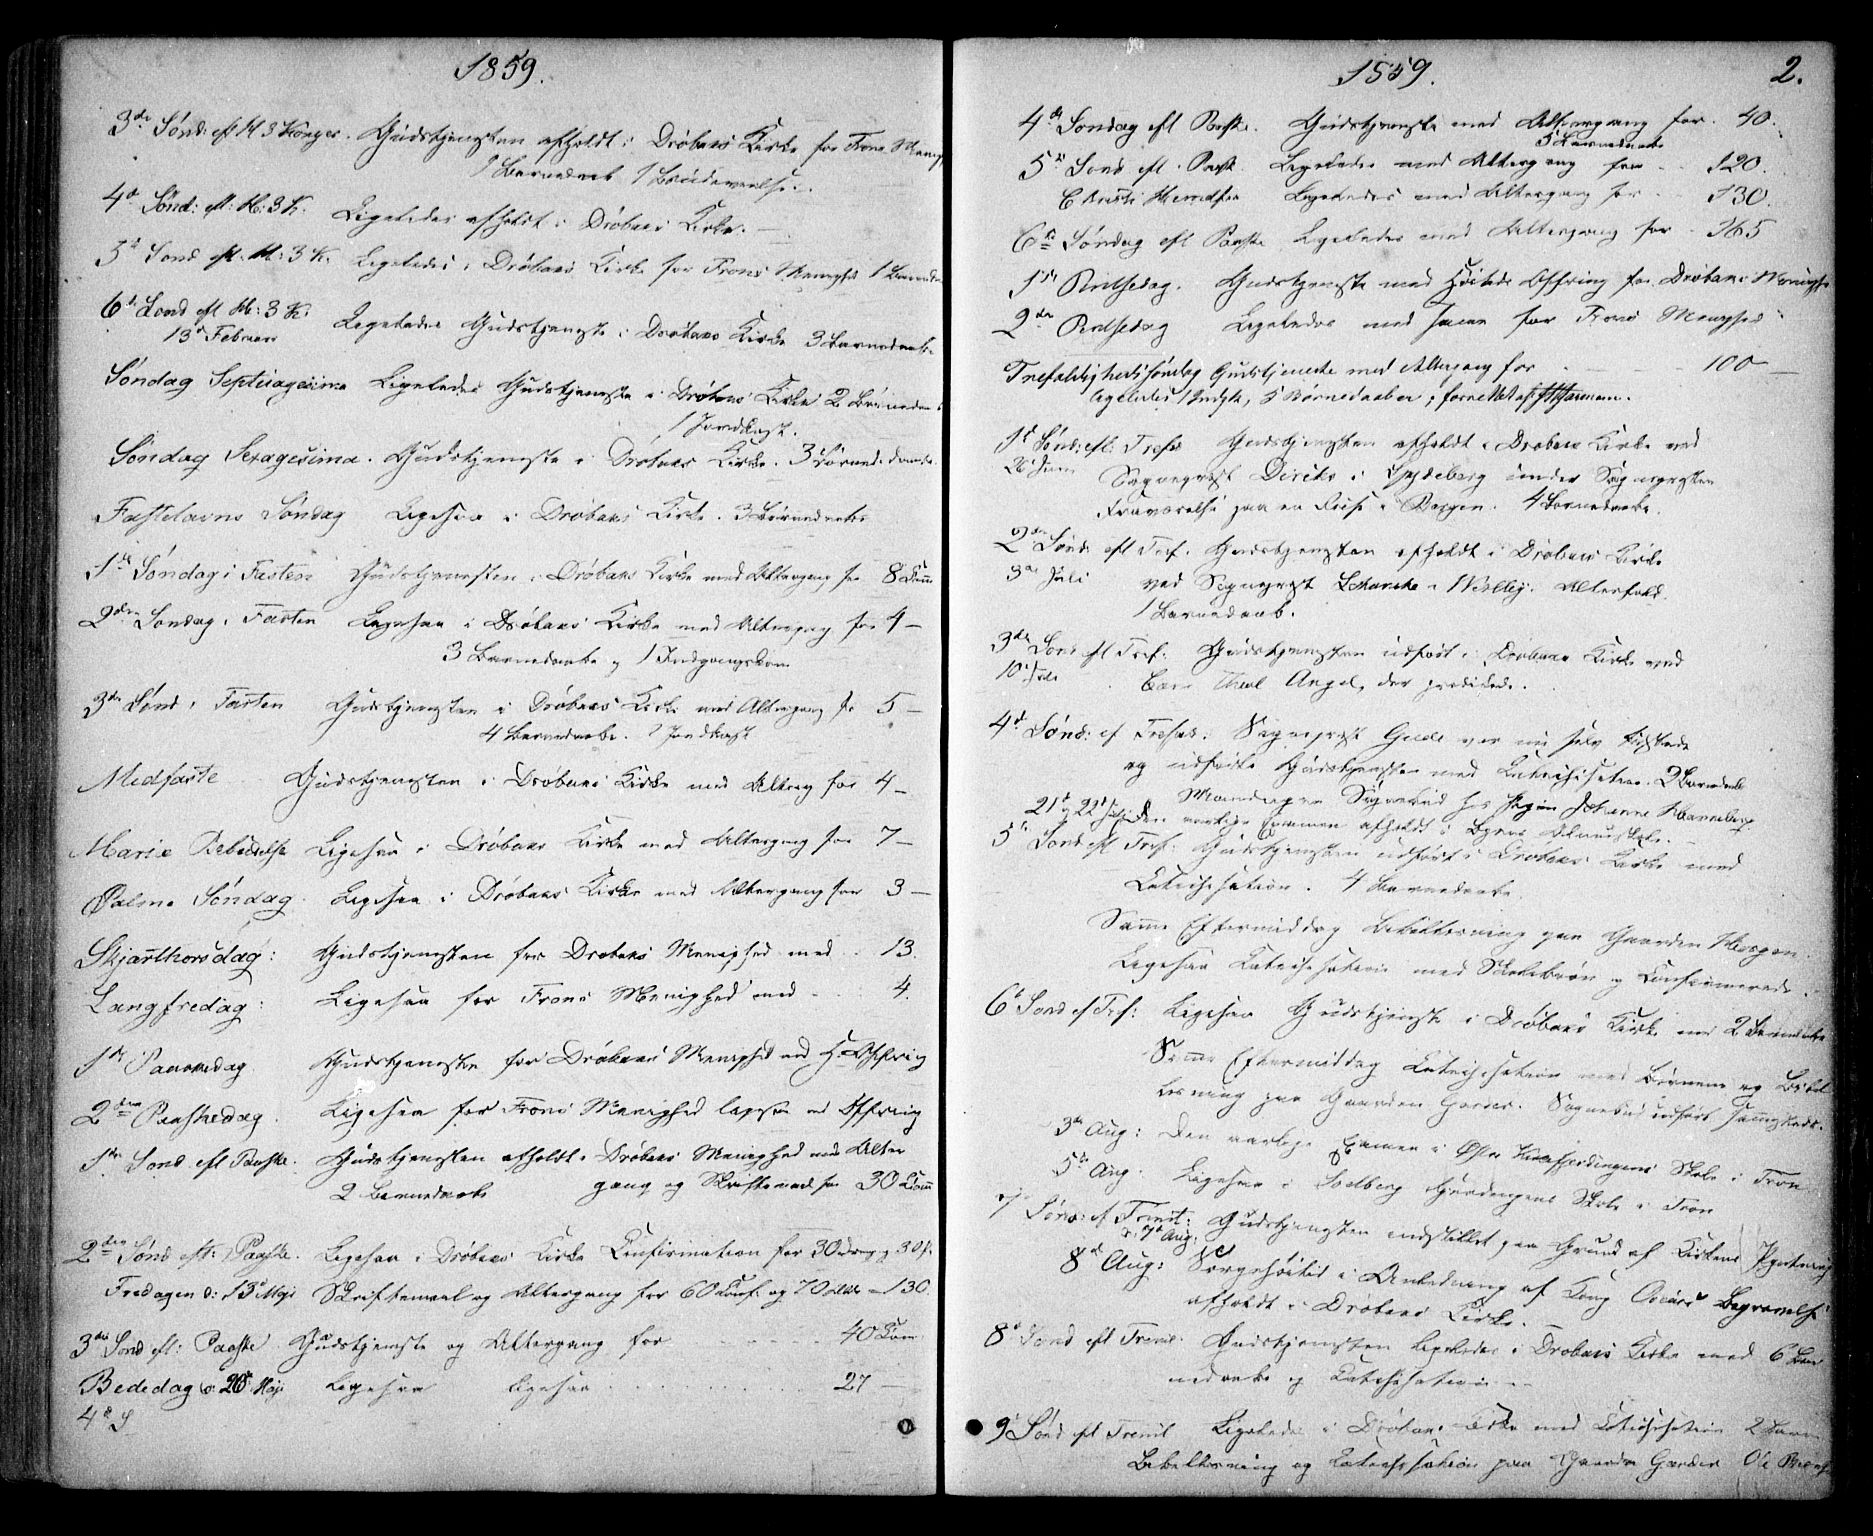 1859.
3de Sønd: eft H 3 Konger. Gudstjenesten afholdt i Drøbaks Kirke for Frons Menig
1 Barnedaab 1 Brudevielse.
4de Sønd: eft: H: 3 K. Ligeledes afholdt i Drøbaks Kirke. —
5te Sønd eft. H: 3 K. Ligeledes i Drøbaks Kirke for Frons Menighed 1 Barneda
6te Sønd eft H: 3 K. Ligeledes Gudstjeneste i Drøbaks Kirke 3 Barnedaabe
13de Februar
Søndag Septuagesima Ligeledes Gudstjeneste i Drøbaks Kirke 2 Barnedaabe
1 Jordkast.
Søndag Sexagesima. Gudstjeneste i Drøbaks Kirke. 3 Barnedaabe
Fastelavns Søndag Ligesaa i Drøbaks Kirke. 3 Barnedaabe
1ste Søndag i Fasten Gudstjenesten i Drøbaks Kirke med Altergang for 8 Com
2den Søndag i Fasten Ligesaa i Drøbaks Kirke med Altergang for 4 —
3 Barnedaabe og 1 Indgangskone
3die Sønd i Fasten Gudstjenesten i Drøbaks Kirke med Altergang for 5 —
4 Barnedaabe. 2 Jordkast
Midfaste Gudstjenesten i Drøbaks Kirke med Alterg for 4 —
Mariæ Bebudelse Ligesaa i Drøbaks Kirke med Altergang for 7 —
Palme Søndag. Ligesaa i Drøbaks Kirke med Altergang for 3 —
Skjærthorsdag: Gudstjenesten for Drøbaks Menighed med .. 13.
Langfredag: Ligesaa for Frons Menighed med — 4.
1ste Paaskedag. Gudstjeneste for Drøbaks Menighed med H. Offring
2den Paaskedag. Ligesaa for Frons Menighed ligesaa med Offring
1ste Sønd eft Paaske. Gudstjenesten afholdt i Drøbaks Menighed med Alter
2 Barnedaabe gang og Skriftemaal for 30 Com
2den Sønd eft: Paaske. Ligesaa i Drøbaks Kirke Confirmation for 30 drenge og 30 p.
Fredagen d: 13de Maji Skriftemaal og Altergang for 60 Conf. og 70 — 130.
3die Sønd eft: Paaske Gudstjeneste og Altergang for 40 Com
Bededag d: 20de Maji Ligesaa Ligesaa 27 —
4de S
1859. 2.
4de Søndag eft Paaske. Gudstjeneste med Altergang for. 40.
5 Barnedaabe
5te Sønd eft. Paaske Ligeledes med Altergang for 120.
Christi Himmelfa Ligeledes med Altergang for 130.
6te Søndag eft Paaske Ligeledes med Altergang for 165
1ste Pintsedag. Gudstjeneste med Høitids Offring for Drøbaks Menighe
2den Pintsedag Ligeledes med samme for Frons Menighed
Trefoldighedssøndag Gudstjeneste med Altergang for 100 —
ligeledes 1 Indgk, 5 Børnedaaber; forrettet af
1ste Sønd: eft: Trefo Gudstjenesten afholdt i Drøbaks Kirke ved
26 Juni Sognepræst Diriks i Spydeberg under Sognepræsten
Fraværelse paa en Reise i Bergen. 4 Barnedaabe.
2den Sønd eft Tref. Gudstjenesten afholdt i Drøbaks Kirke
3die Juli ved Sognepræst Schancke i Vestby. Alterfold.
1 Barnedaab.
3die Sønd eft Tref: Gudstjenesten udført i Drøbaks Kirke ved
10 Juli Cand Theol Angel, der prædikede.
4de Sønd: ef Trefold: Sognepræst Gude var nu selv tilstede
og udførte Gudstjenesten med Catechisation. 2 Barnedaabe
Mandagen Sognebud hos Pigen Johanne Hanneborg
21de og 22de Juli Den aarlige Examen afholdt i Byens Almueskole.
5te Sønd eft Tref: Gudstjenesten udført i Drøbaks Kirke med
Catechisation. 4 Barnedaabe.
Samme Eftermiddag Bibellæsning paa Gaarden Haugen.
Ligesaa Catechisation med Skolebørn og Confirmerede.
6te Sønd ef Tref: Ligesaa Gudstjeneste i Drøbaks Kirke med 2 Barnedaabe
Samme Eftermiddag Catechisation med Børnene og Bibel
læsning paa Gaarden . Sognebud udført sammesteds.
3die Aug: Den aarlige Examen i Østre Skole i Fron
5te Aug. Ligesaa i Solberg Skole i Fron
7 Sønd: ef Trinit: Gudstjenesten indstillet paa Grund af Kirkens Pyntning
d. 7de Aug:
8de Aug: Sørgehøitid i Anledning af Kong Oscars Begravelse
afholdt i Drøbaks Kirke. —
8de Sønd eft Trinit. Gudstjenesten ligeledes i Drøbaks Kirke med 6 Bar
nedaabe og Catechisation —
9de Sønd eft Trinit Ligeledes i Drøbaks Kirke med Catechisation 2 Barn
Bibellæsning og Catechisation paa Gaarden Garder Ole